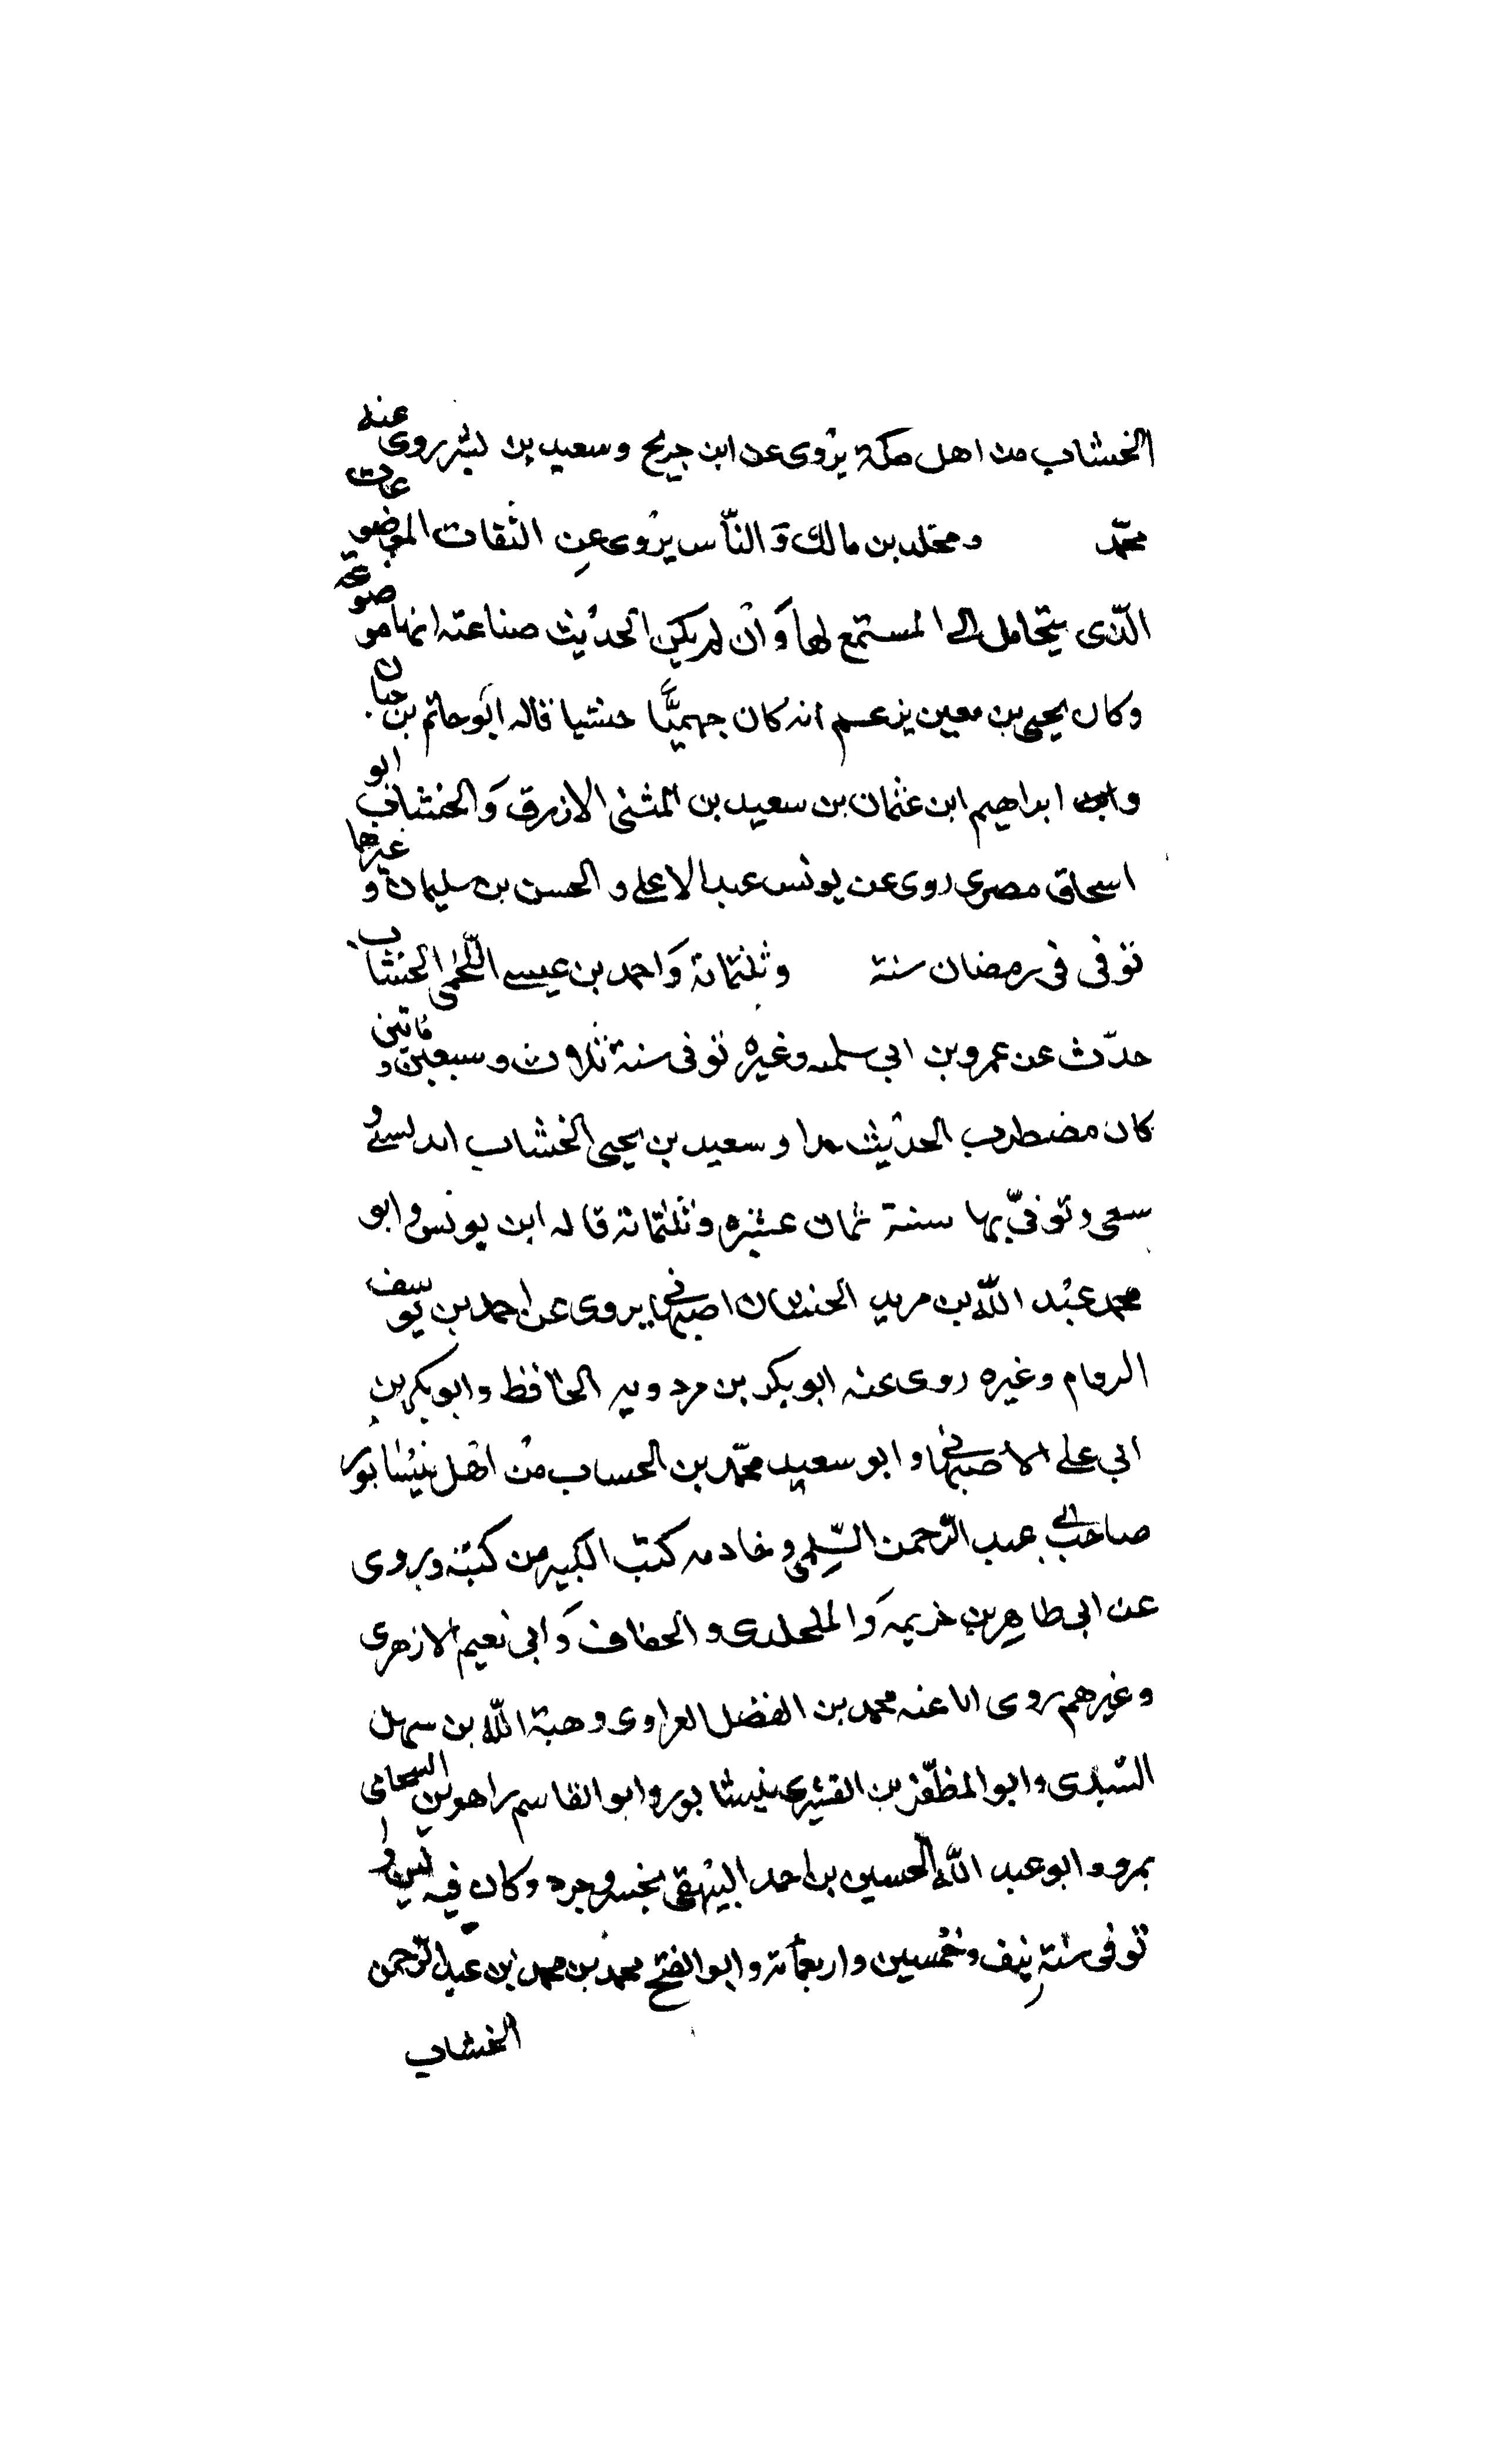 الخشاب من اهل مكة يروى عن ابن جريج وسعيد بن بشر روى عنه
محمّد ومخلد بن مالك وَالنّاس يروى عنِ الثقات الموضوعات
الّذى يتخامل الى المستمع لها وَان لم يكن الحديث صناعته انها موضوعة
وكان يحيى بن معين يزعم انه كان جهميًّا قاله ابو حاتم بن حبان
وابو ابراهيم ابن عثمان بن سعيد بن المثنى الازرق وَالخشاب ابو
اسحاق مصرى روى عن يونس عبد الاعلى والحسن بن سليمان وغيرها
توفى فى رمضان سنة وثلثمائة وَاحمد بن عيسى اللّخمى الخشاب
حدّث عن عمرو بن ابي سلمه وغيره توفى سنة ثلاث وسبعين ومأتين
كان مضطرب الحديث وسعيد بن يحيى الخشاب اندلسى و
توفىّ بها سنة ثمان عشره وثلثمائة قاله ابن يونس وابو
محمد عبد اللّه بن الخشاب اصبهانى يروى عن احمد بن يوسف
وغيره روى عنه ابو بكر بن مردويه الحافظ وابو بكر بن
ابي على الاصبهانى وابو سعيد محمّد بن الحساب من اهل نيسابور
صاحب ابى عبد الرّحمن السّلمى وخادمه كتب الكبير من كتبه ويروى
عن ابى طاهر بن خزيمه وَالمخلدى والخفاف وَابى نعيم الازهرى
وغيرهم روى انا عنه محمد بن الفضل الفراوى وهبة اللّه بن سهل
السّيدى وابو المظفّر بن القشيرى بنيسابور وابو القاسم زاهر بن السحامى
بمرو وابو عبد اللّه الحسين بن احمد البيهقى بخسروجرد وكان فيه لين و
توفى سنة نيف وخمسين واربعمائة وابو الفتح محمد بن محمد ابن عبد الرحمن
الخشاب